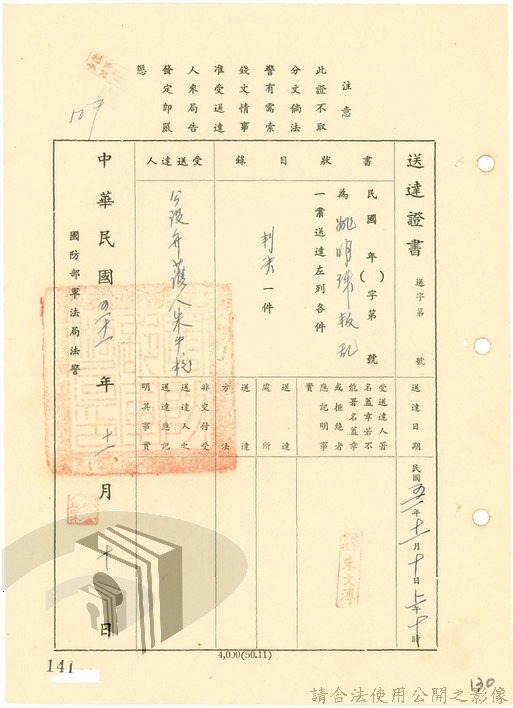 注意
此證不取
分文倘法
警有需索
錢文情事
准受送達
人來局告
發定即嚴
懲
送達證書
送字第 號
送達日期
民國五十一年十一月十日上午十時
書狀目錄
受送達人
民國 年( )字第 號
為姚明珠叛乱
一案送達左列各件
判決一件
公設弁護人朱中校
受送達人署
名蓋章若不
能署名蓋章
或拒絕者
應記明事
實
送達處所
送達方法
非交付受
送達人之
送達應記
明其事實
朱文溥
中華民國五十一年十一月十日
國防部軍法局法警
4,000(50.11)
141
130
請合法使用公開之影像